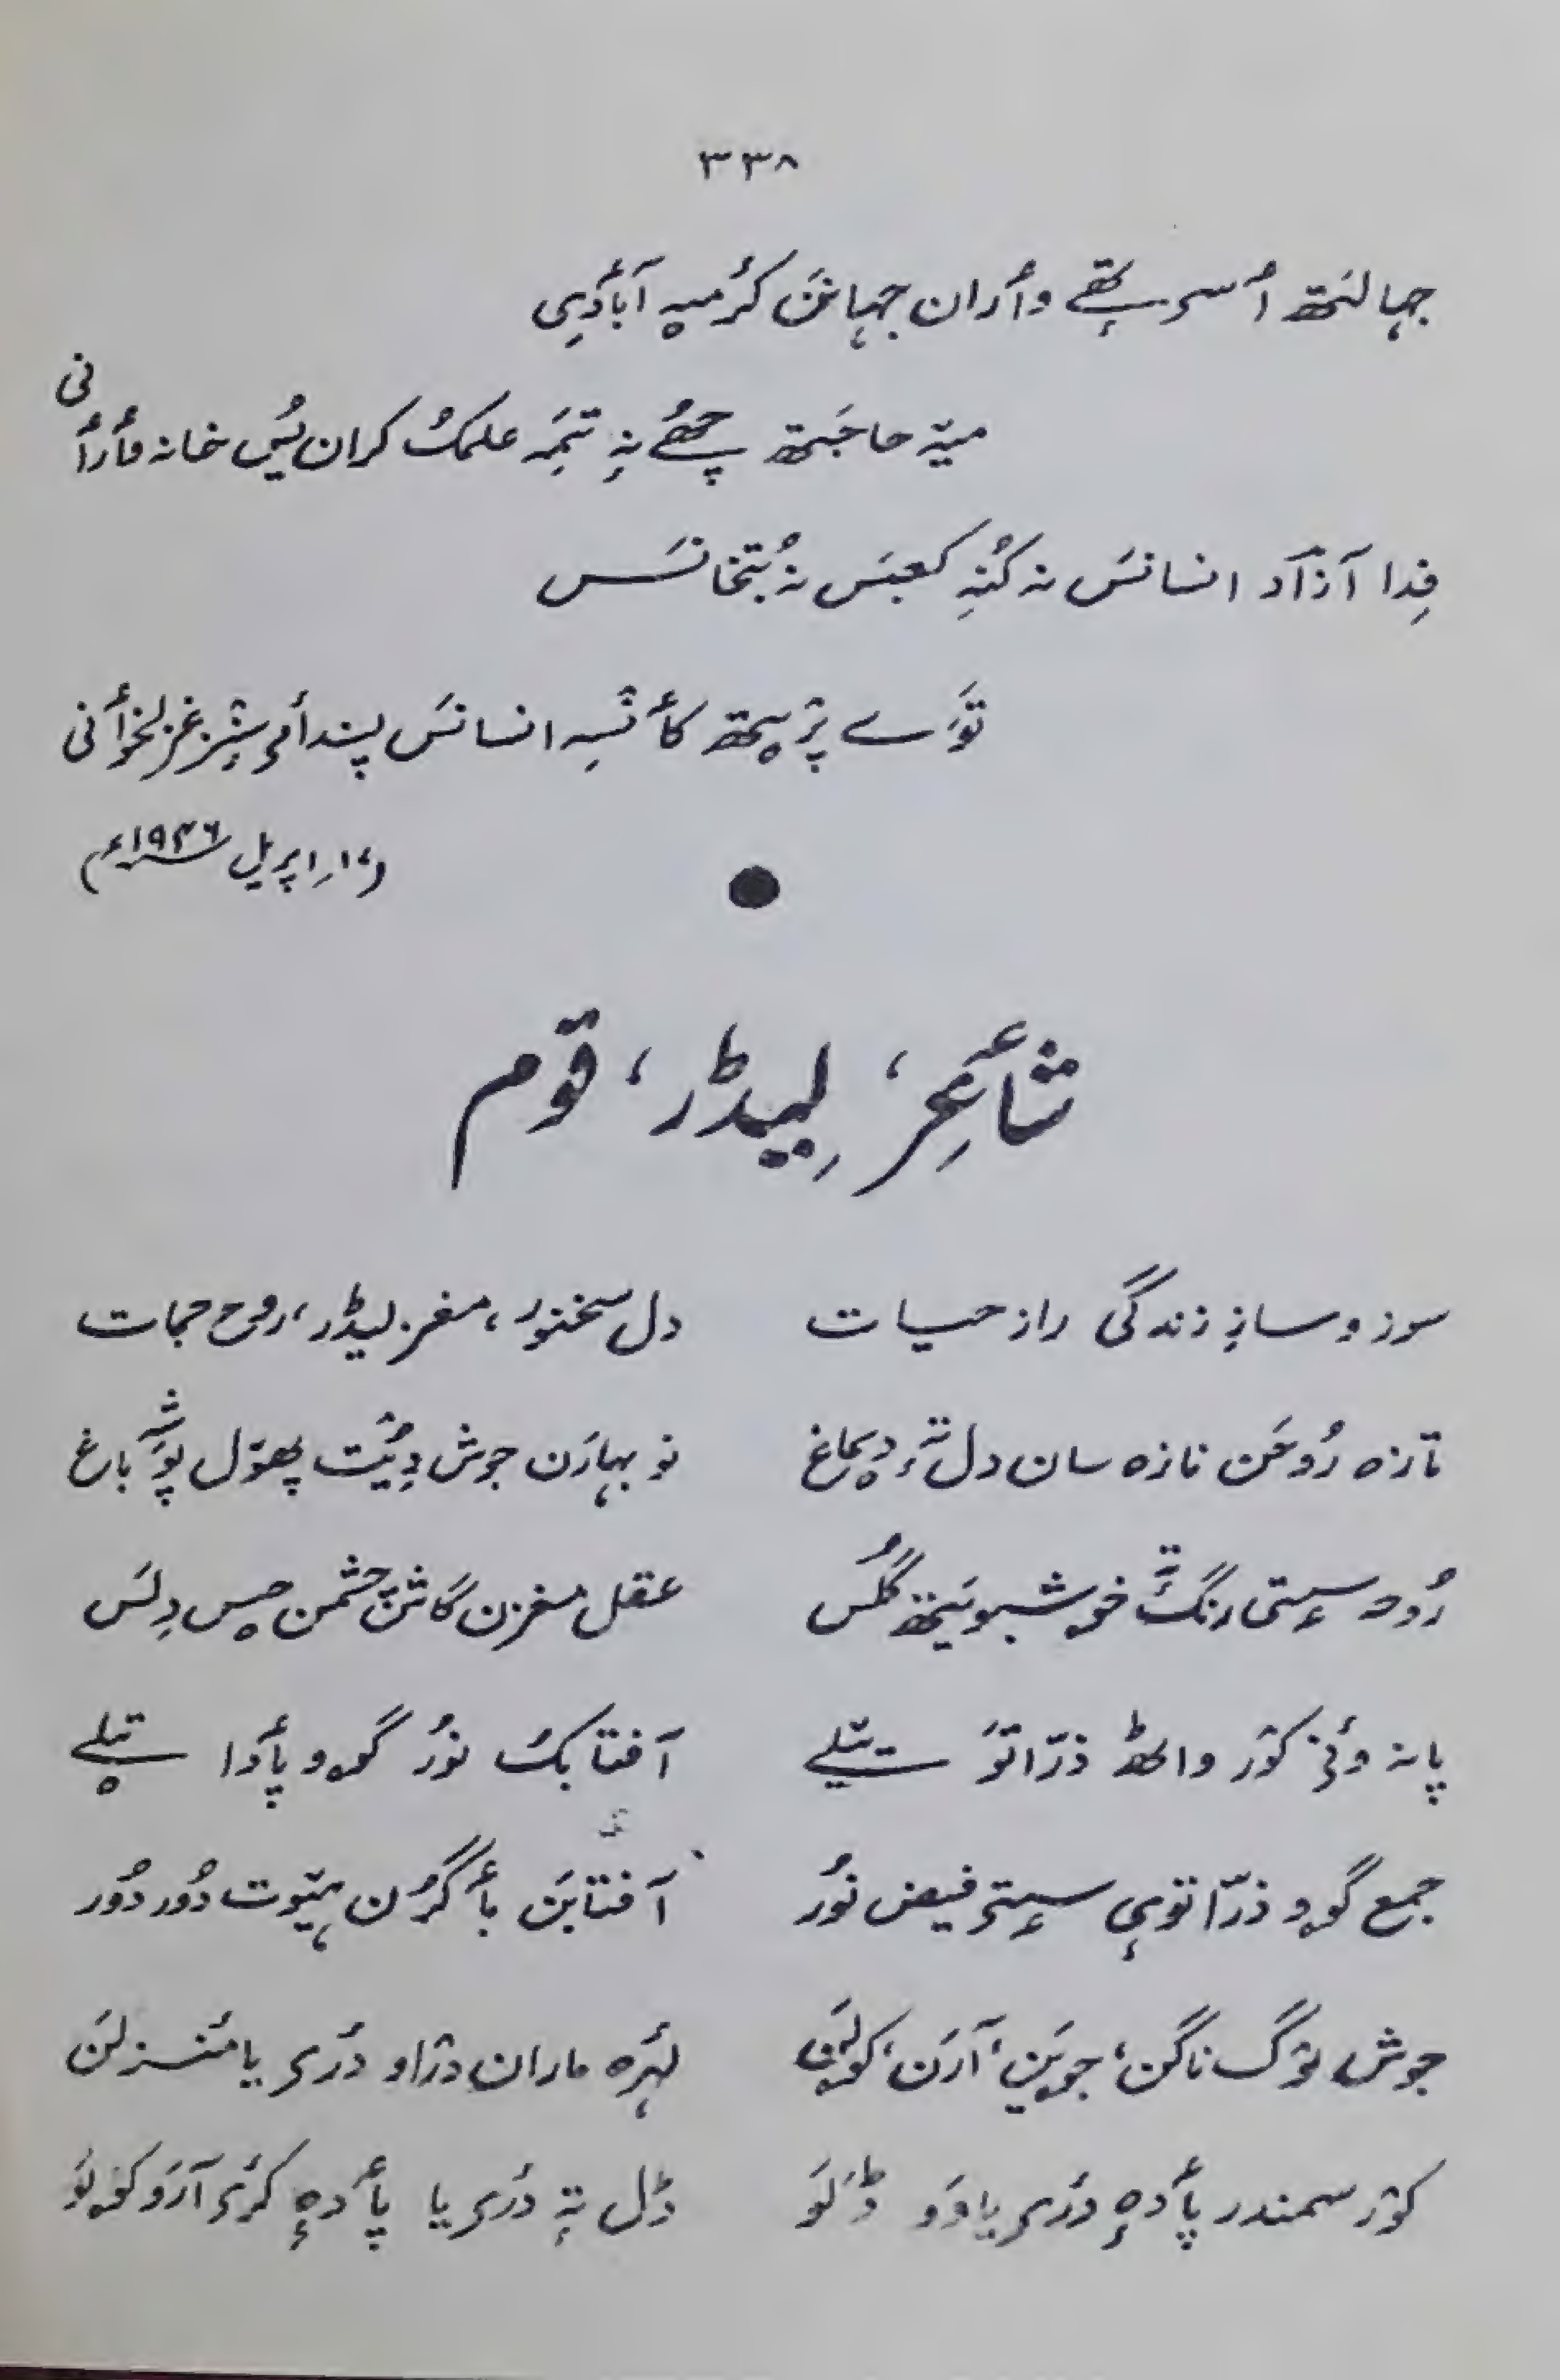 ۳۳۸
جہالتٕتھ أسی تھے وأران جہانَن کرُمیہ آبأدی
میٚہ حاجَتھ چھُے نہٕ تِمہٕ علمُک کران یُس خانہ مأرأنی
فِدا آزاد انسانَس نہ کُنہِ کعبَس نہ بُتخانَس
تَوَے پٮ۪تھ کأنٛسہِ انسانَس پسند أمی سٕنٛز غزلخوأنی
(۱۷؍اپریل ۱۹۴۶ء)
شأعِر، لیٖڈر، قوم
سوز و سازِ زندگی رازِ حیات
دل سخنور، مغز لیڈر، روح جمات
تازہ رُوحَن تازہ سان دل تہٕ دِماغ
نو بہارَن جوش دِیُت پھۆل پوشہِ باغ
رُوح سٕتی رنگ تہٕ خوشبویَتھ گُلَس
عقل مغزن گاش چشمن حِس دِلَس
پانہ وٲنی کۆر واٹھ ذرّاتَو یتیلے
آفتابُک نوٗر گوٚو پٲدا تیلے
جمع گوٚو ذرّاتَوی سٕتی فیض نوٗر
آفتابَن بأگرُن ہیوٚت دوٗر دوٗر
جوش یۆگ ناگن، جویَن، آرَن، کۄلَن
لہرِ ماران دراو دٔریا منٛزلَن
کۆر سمندر پأدہٕ دٔریاوَو ڈلَو
ڈل تہٕ دٔریا پأدہٕ کٔری آرَو کۄلَو